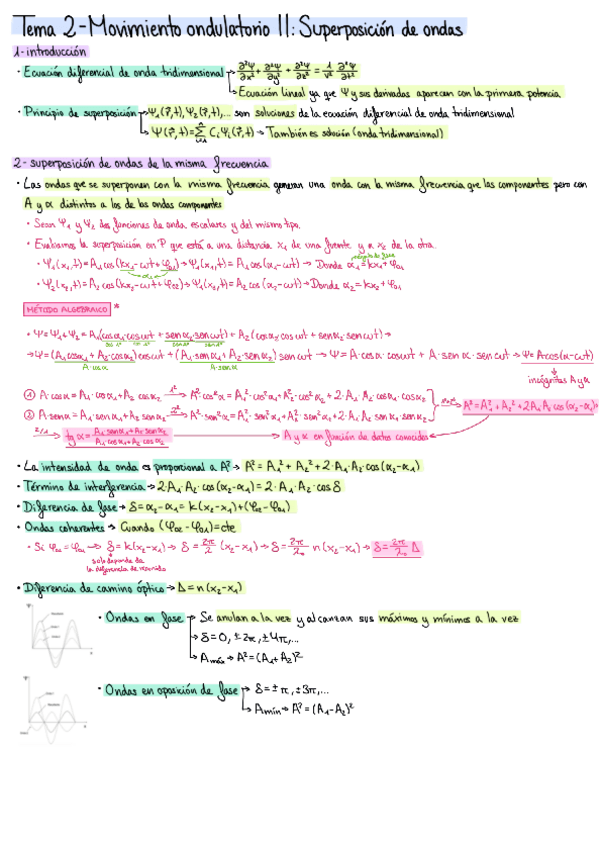 Tema 2-Movimiento ondulatorio II: Superposición de ondas
1- introducción
· Ecuación diferencial de onda tridimensional → ∂²Ψ/∂x² + ∂²Ψ/∂y² + ∂²Ψ/∂z² = 1/v² ∂²Ψ/∂t²
↳ Ecuación lineal ya que Ψ y sus derivadas aparecen con la primera potencia.
· Principio de superposición → Ψ₁(r⃗,t), Ψ₂(r⃗,t),... son soluciones de la ecuación diferencial de onda tridimensional
↳ Ψ(r⃗,t)=∑ Cᵢ Ψᵢ(r⃗,t) → También es solución (onda tridimensional)
2- superposición de ondas de la misma frecuencia
· Las ondas que se superponen con la misma frecuencia generan una onda con la misma frecuencia que las componentes pero con
A y α distintos a los de las ondas componentes
· Sean Ψ₁ y Ψ₂ dos funciones de onda escalares y del mismo tipo.
· Evaluamos la superposición en P que está a una distancia x₁ de una fuente y a x₂ de la otra.
· Ψ₁(x₁,t)=A₁cos(kx₁-ωt+φ₀₁)→Ψ₁(x₁,t)=A₁cos(α₁-ωt) → Donde α₁=kx₁+φ₀₁
· Ψ₂(x₂,t)=A₂cos(kx₂-ωt+φ₀₂)→Ψ₂(x₂,t)=A₂cos(α₂-ωt)→Donde α₂=kx₂+φ₀₂
MÉTODO ALGEBRAICO *
· Ψ=Ψ₁+Ψ₂=A₁(cosα₁·cosωt + senα₁·senωt) + A₂(cosα₂·cosωt + senα₂·senωt) →
→Ψ=(A₁cosα₁+A₂·cosα₂)cosωt + (A₁·senα₁+A₂·senα₂)senωt → Ψ=A·cosα·cosωt + A·senα·senωt → Ψ=Acos(α-ωt)
A·cosα A·senα
incógnitas A y α
① A·cosα=A₁·cosα₁+A₂·cosα₂ → A²·cos²α=A₁²·cos²α₁+A₂²·cos²α₂+2·A₁·A₂·cosα₁·cosα₂
→ A²=A₁²+A₂²+2A₁A₂cos(α₂-α₁)
② A·senα=A₁·senα₁+A₂·senα₂ → A²·sen²α=A₁²·sen²α₁+A₂²·sen²α₂+2·A₁·A₂·senα₁·senα₂
2/1 → tgα= (A₁·senα₁+A₂·senα₂)/(A₁·cosα₁+A₂·cosα₂) → A y α en función de datos conocidos
· La intensidad de onda es proporcional a A² → A²=A₁²+A₂²+2·A₁·A₂·cos(α₂-α₁)
· Término de interferencia → 2·A₁·A₂·cos(α₂-α₁)=2·A₁·A₂·cosδ
· Diferencia de fase → δ=α₂-α₁=k(x₂-x₁)+(φ₀₂-φ₀₁)
· Ondas coherentes → Cuando (φ₀₂-φ₀₁)=cte
· Si φ₀₂=φ₀₁ → δ=k(x₂-x₁) → δ=2π/λ (x₂-x₁) → δ=2π/λ₀ n(x₂-x₁) → δ=2π/λ₀ Δ
solo depende de
la diferencia de recorrido
· Diferencia de camino óptico → Δ=n(x₂-x₁)
· Ondas en fase → Se anulan a la vez y alcanzan sus máximos y mínimos a la vez
→ δ=0,±2π,±4π,...
→ Amáx → A²=(A₁+A₂)²
· Ondas en oposición de fase → δ=±π,±3π,...
→ Amín → A²=(A₁-A₂)²